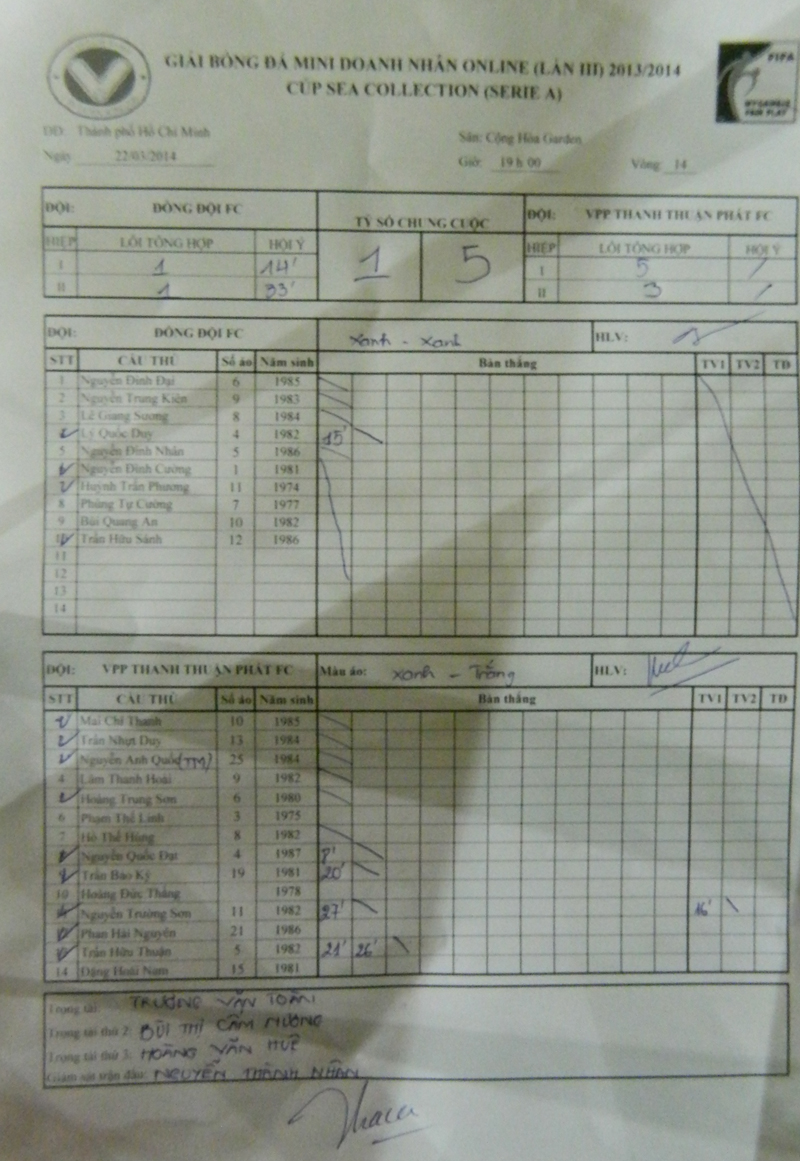 GIẢI BÓNG ĐÁ MINI DOANH NHÂN ONLINE (LẦN III) 2013/2014
CÚP SEA COLLECTION (SERIE A)
FIFA
MY GAME IS FAIR PLAY
DĐ: Thành phố Hồ Chí Minh Sân: Cộng Hòa Garden
Ngày 22/03/2014 Giờ: 19 h 00 Vòng: 14
ĐỘI: ĐỒNG ĐỘI FC TỶ SỐ CHUNG CUỘC ĐỘI: VPP THANH THUẬN PHÁT FC
HIỆP LỖI TỔNG HỢP HỘI Ý 1 5 HIỆP LỖI TỔNG HỢP HỘI Ý
I 1 14' I 5 /
II 1 33' II 3 /
ĐỘI: ĐỒNG ĐỘI FC xanh - xanh HLV:
STT CẦU THỦ Số áo Năm sinh Bàn thắng TV1 TV2 TĐ
1 Nguyễn Đình Đại 6 1985
2 Nguyễn Trung Kiên 9 1983
3 Lê Giang Sương 8 1984
Lý Quốc Duy 4 1982 15'
5 Nguyễn Đình Nhân 5 1986
Nguyễn Đình Cường 1 1981
Huỳnh Trần Phương 11 1974
8 Phùng Tự Cường 7 1977
9 Bùi Quang An 10 1982
10 Trần Hữu Sánh 12 1986
11
12
13
14
ĐỘI: VPP THANH THUẬN PHÁT FC Màu áo: xanh - Trắng HLV:
STT CẦU THỦ Số áo Năm sinh Bàn thắng TV1 TV2 TĐ
Mai Chí Thanh 10 1985
Trần Nhựt Duy 13 1984
Nguyễn Anh Quốc (TM) 25 1984
4 Lâm Thanh Hoài 9 1982
Hoàng Trung Sơn 6 1980
6 Phạm Thế Linh 3 1975
7 Hồ Thế Hùng 8 1982
Nguyễn Quốc Đạt 4 1987 8'
Trần Bảo Kỳ 19 1981 20'
10 Hoàng Đức Thắng 1978
Nguyễn Trường Sơn 11 1982 27' 16'
Phan Hải Nguyên 21 1986
Trần Hữu Thuận 5 1982 21' 26'
14 Đặng Hoài Nam 15 1981
Trọng tài: TRƯƠNG VĂN TOÀN
Trọng tài thứ 2: BÙI THỊ CẨM HƯƠNG
Trọng tài thứ 3: HOÀNG VĂN HUỆ
Giám sát trận đấu: NGUYỄN THÀNH NHÂN